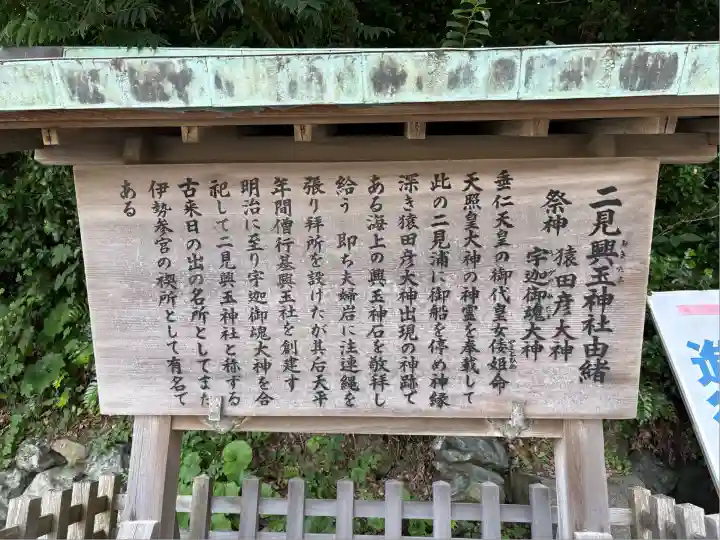 二見興玉神社由緒
おきたま
祭神 猿田彦大神
宇迦御魂大神
垂仁天皇の御代皇女倭姫命
天照皇大神の神霊を奉載して
此の二見浦に御船を停め神縁
深き猿田彦大神出現の神跡で
ある海上の興玉神石を敬拝し
給う 即ち夫婦岩に注連縄を
張り拝所を設けたが其后天平
年間僧行基興玉社を創建す
明治に至り宇迦御魂大神を合
祀して二見興玉神社と称する
古来日の出の名所としてまた
伊勢参宮の禊所として有名で
ある